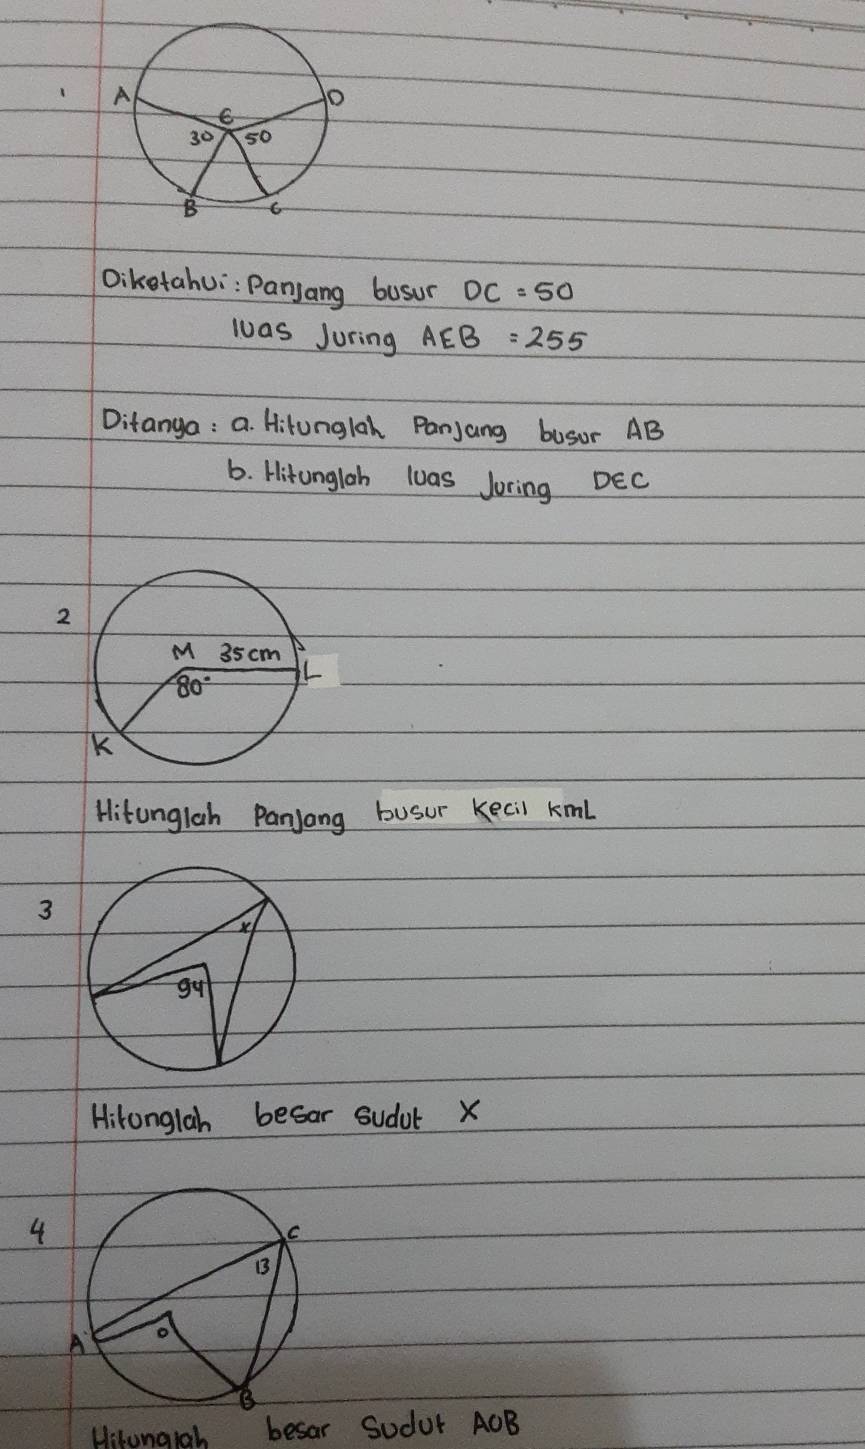 1
A
D
E
30
50
B
C
Diketahui: Panjang busur DC = 50
luas Juring AEB = 255
Ditanya: a. Hitunglah Panjang busur AB
b. Hitunglah luas Juring DEC
2
M 35cm
L
80°
K
Hitunglah Panjang busur kecil KmL
3
x
94
Hitunglah besar sudut X
4
C
13
O
A
B
Hitunglah besar Sudut AOB